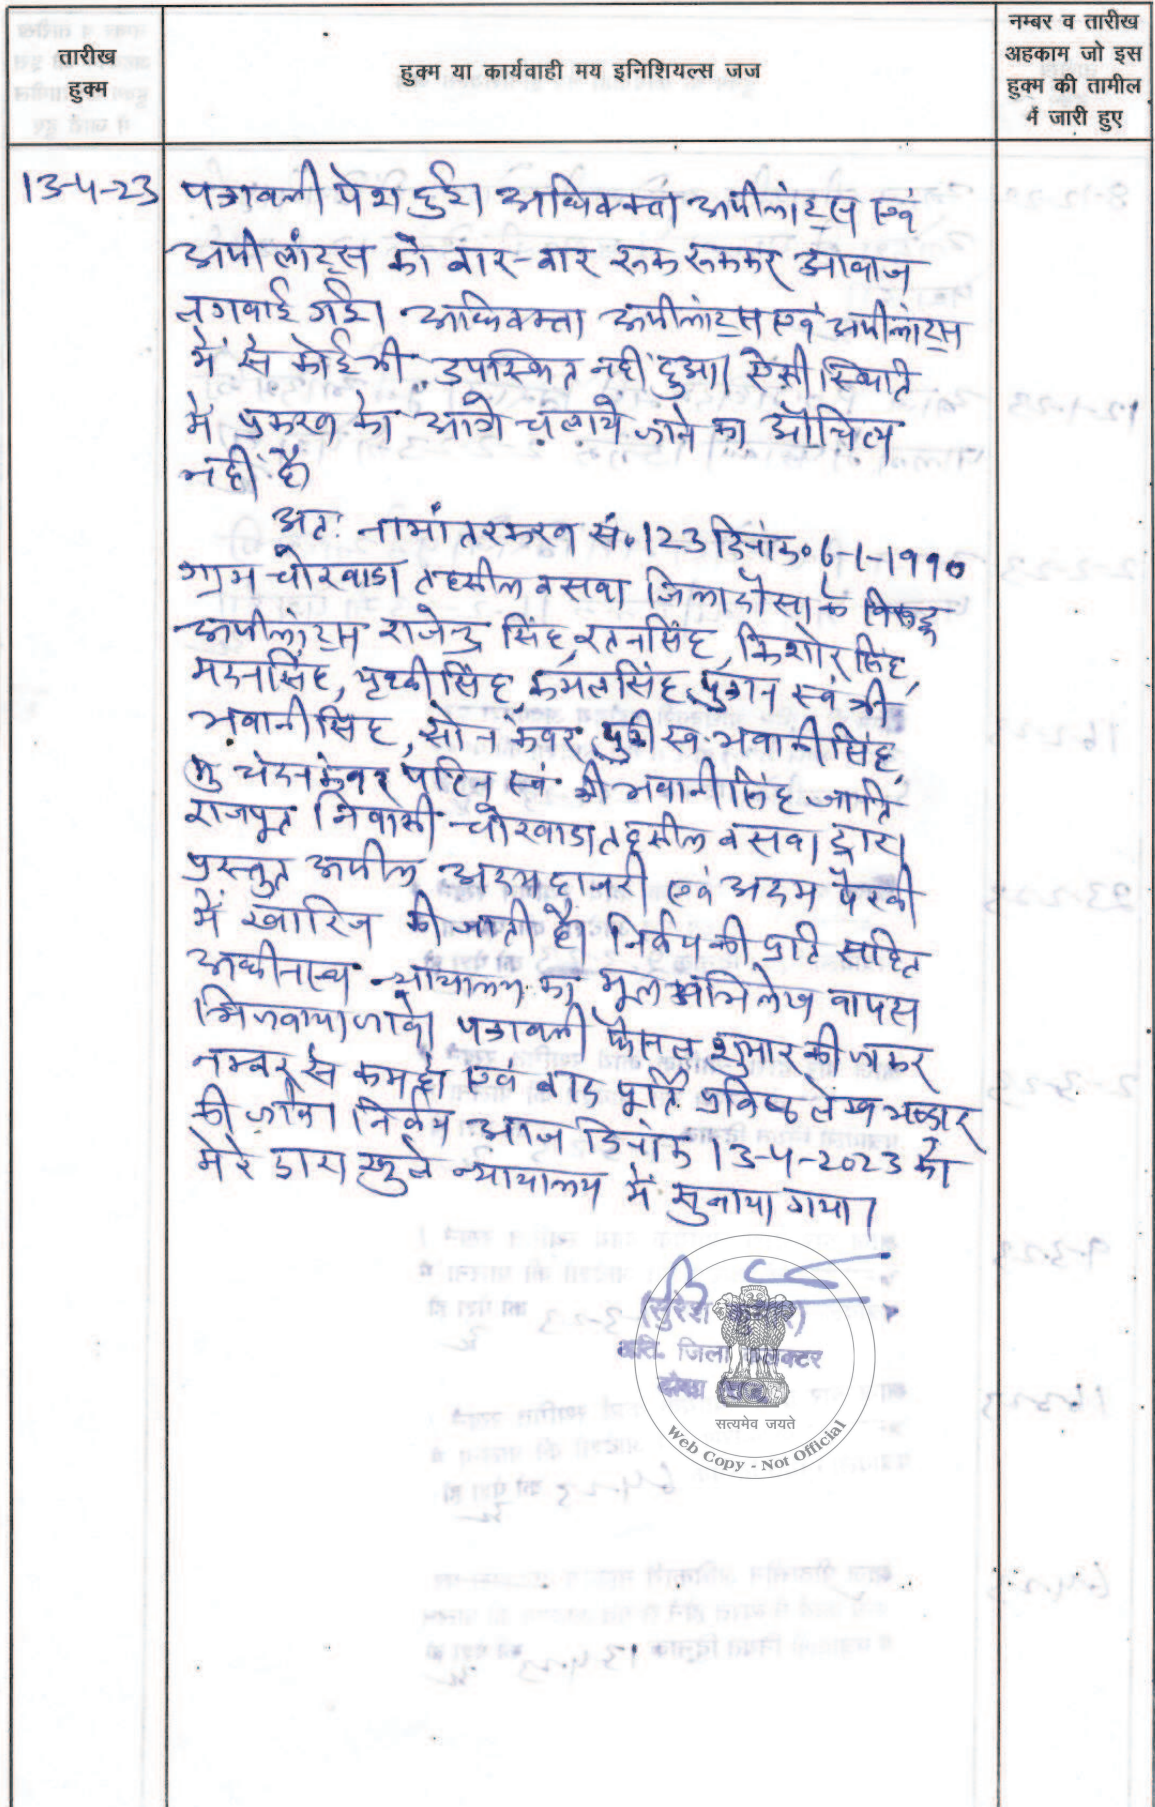 तारीख
हुक्म
हुक्म या कार्यवाही मय इनिशियल्स जज
नम्बर व तारीख
अहकाम जो इस
हुक्म की तामील
में जारी हुए
13-4-23
पत्रावली पेश हुई। अधिवक्ता अपीलांट्स एवं
अपीलांट्स को बार-बार रूक रूककर आवाज
लगवाई गई। अधिवक्ता अपीलांट्स एवं अपीलांट्स
में से कोई भी उपस्थित नहीं हुआ। ऐसी स्थिति
में प्रकरण को आगे चलाये जाने का औचित्य
नहीं है।
अतः नामांतरकरण सं. 123 दिनांक 6-1-1990
ग्राम चोरवाडा तहसील बसवा जिला दौसा के विरूद्ध
अपीलांट्स राजेन्द्र सिंह, रतनसिंह, किशोर सिंह,
मदनसिंह, पृथ्वीसिंह, कमलसिंह, पुत्रान स्व. श्री
भवानीसिंह, सोनकंवर पुत्री स्व. भवानीसिंह,
मु. चंदनकंवर पत्नि स्व. श्री भवानीसिंह जाति
राजपूत निवासी चोरवाडा तहसील बसवा द्वारा
प्रस्तुत अपील अदम हाजरी एवं अदम पैरवी
में खारिज की जाती है। निर्णय की प्रति सहित
अधीनस्थ न्यायालय का मूल अभिलेख वापस
भिजवाया जावे। पत्रावली फैसल शुमार की जाकर
नम्बर से कम हो एवं बाद पूर्ति प्रविष्ठ लेख भण्डार
की जावे। निर्णय आज दिनांक 13-4-2023 को
मेरे द्वारा खुले न्यायालय में सुनाया गया।
(सुरेश कुमार)
अति. जिला कलक्टर
दौसा
सत्यमेव जयते
Web Copy - Not Official